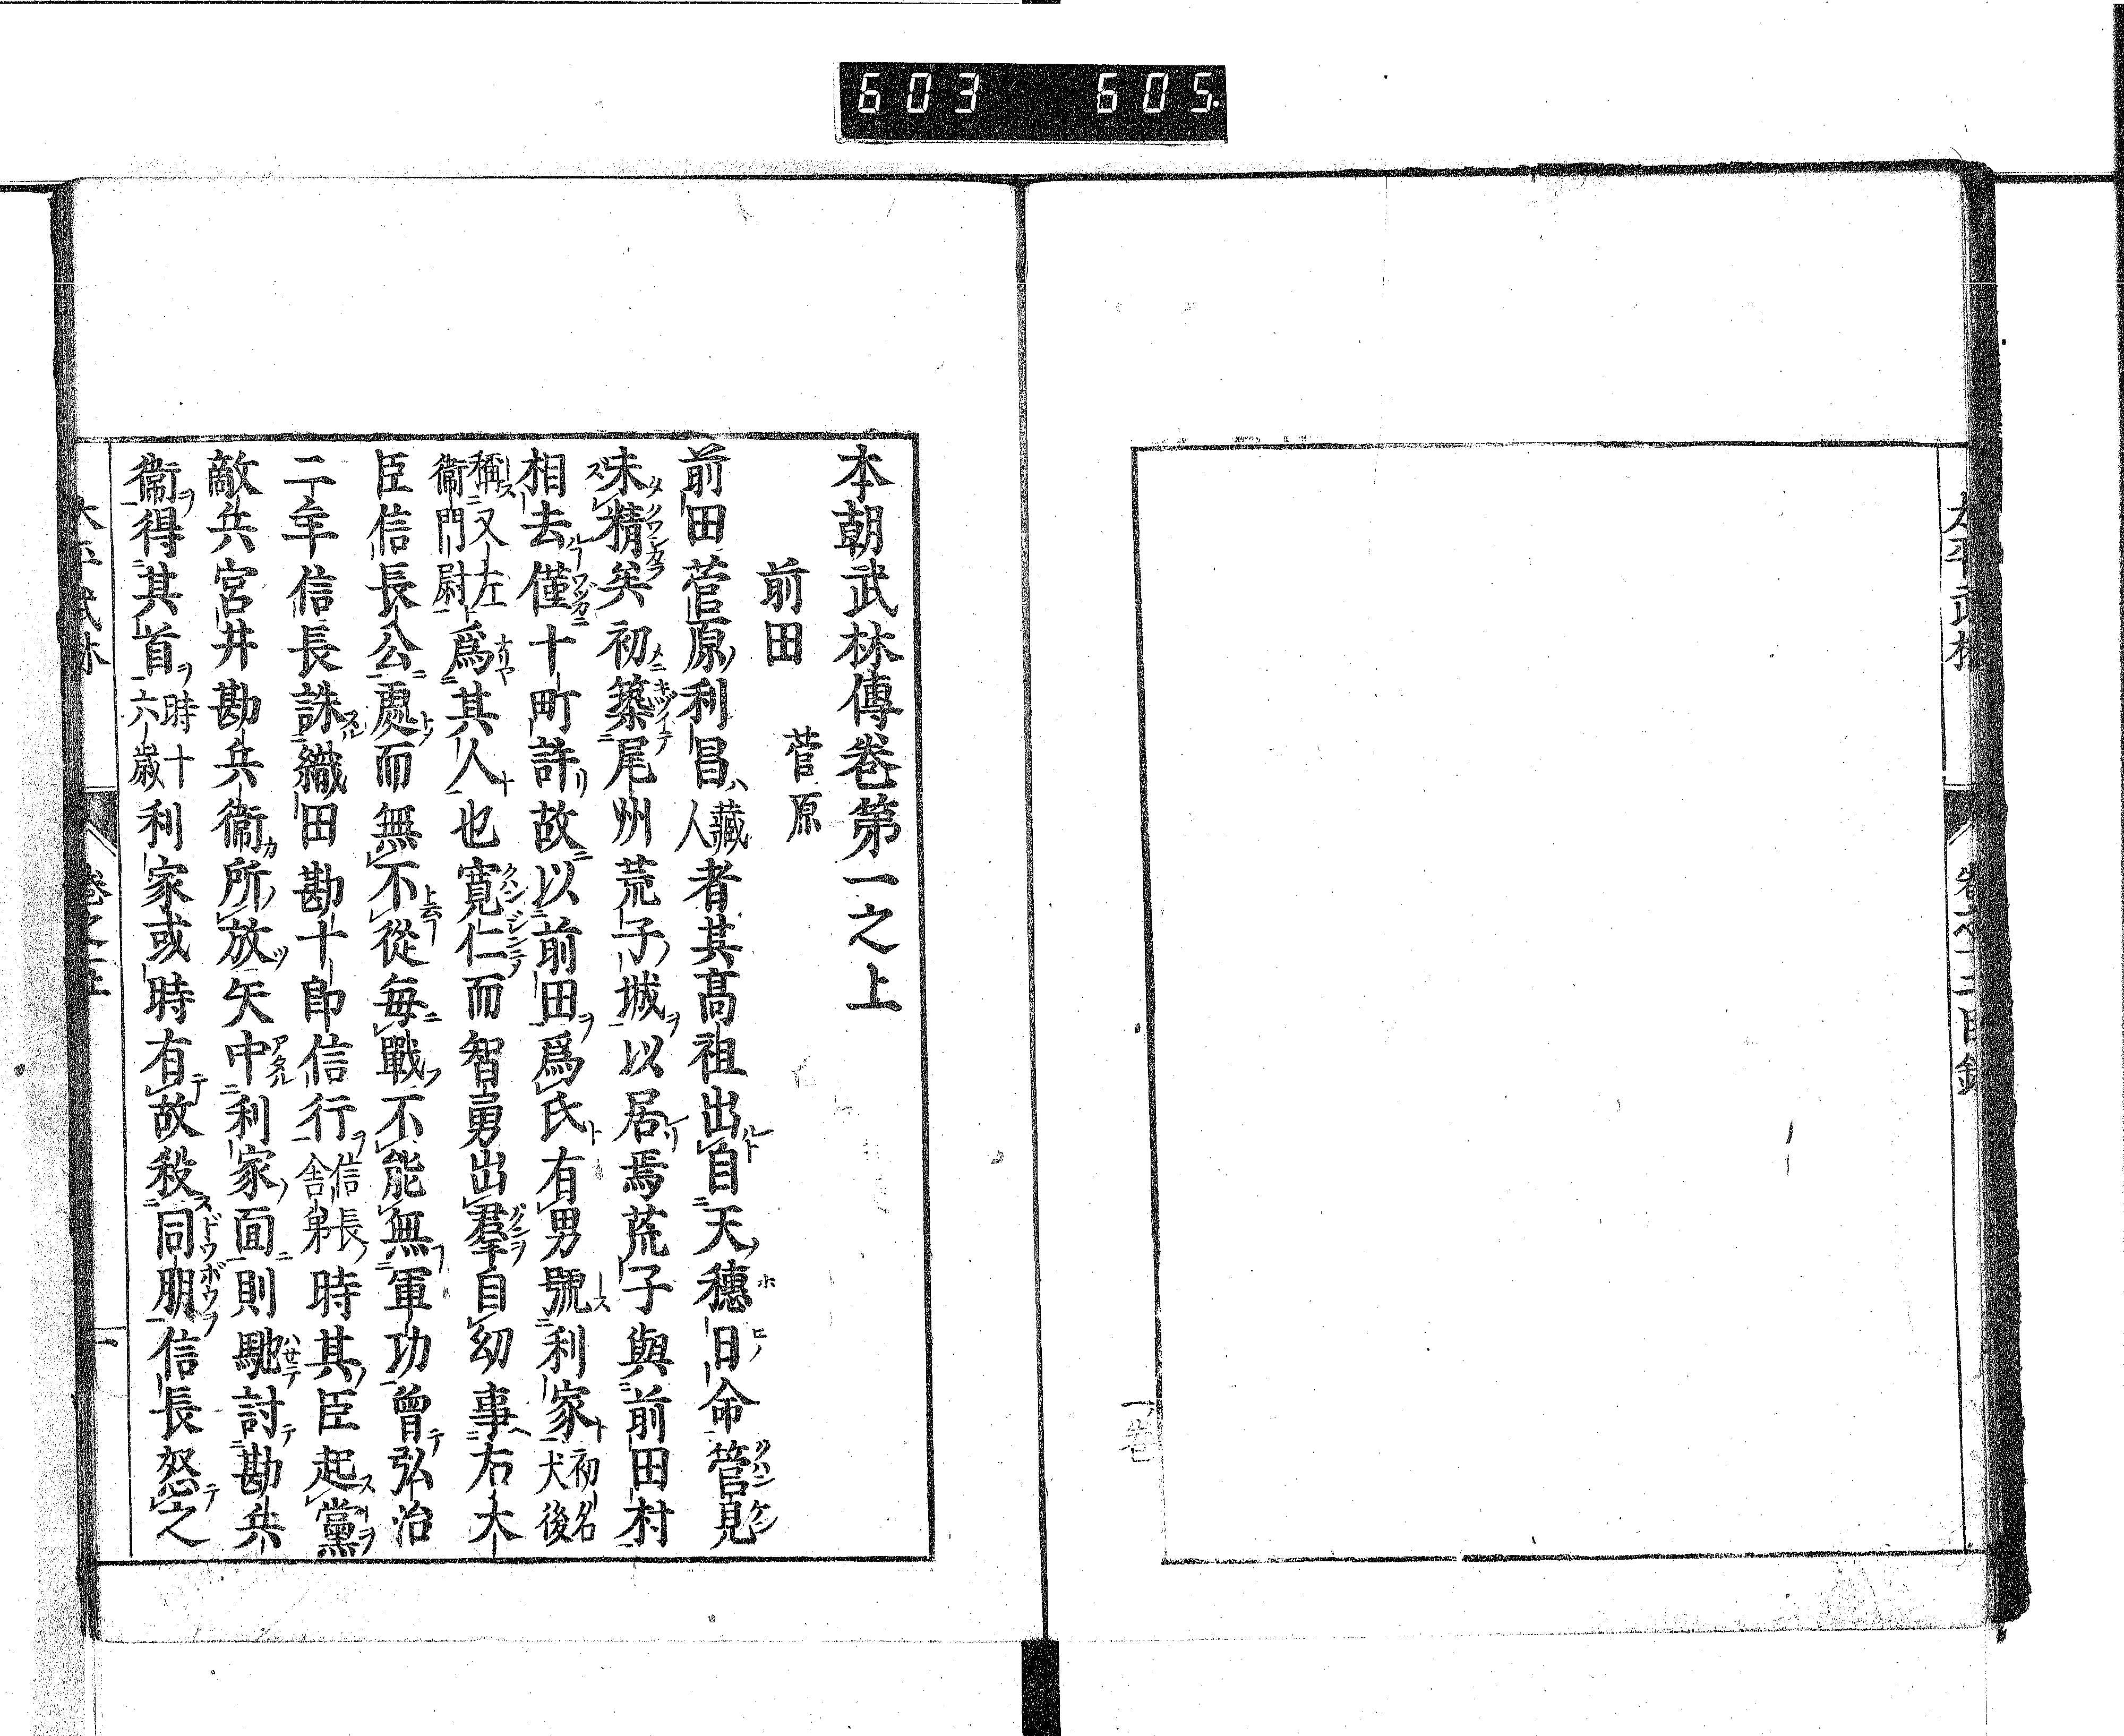 603 605
太平武林 卷之一二目録
一卷
本朝武林傳卷第一之上
前田 菅原
前田菅原利昌藏人者其髙祖出自天穗日命管見
未精矣初築尾州荒子城以居焉荒子與前田村
相去僅十町許故以前田爲氏有男號利家初名犬後
稱又左衞門尉爲其人也寛仁而智勇出羣自幼事右大
臣信長公處而無不從毎戰不能無軍功曾弘治
二年信長誅織田勘十郎信行信長舎弟時其臣起黨
敵兵宮井勘兵衞所放矢中利家面則馳討勘兵
衞得其首時十六歳利家或時有故殺同朋信長怒之